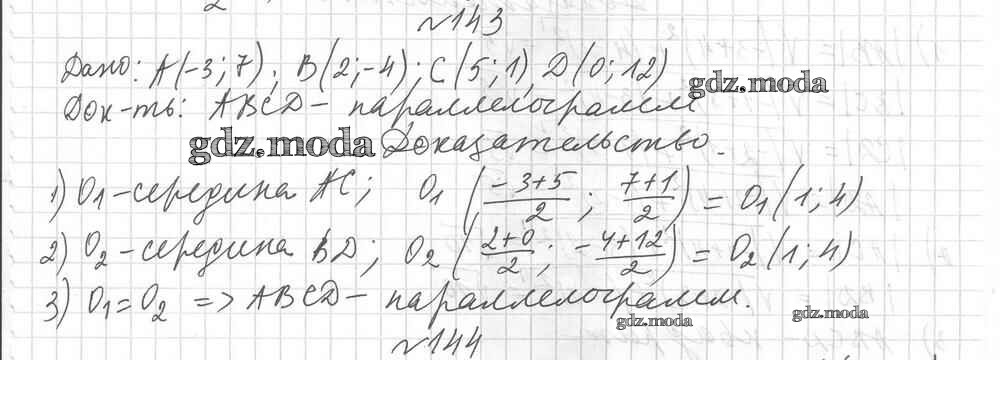 №143
Дано: A(-3;7); B(2;-4); C(5;1), D(0;12)
gdz.moda
Док-ть: ABCD - параллелограмм
gdz.moda Доказательство.
1) O1 - середина AC; O1 (-3+5/2; 7+1/2) = O1(1;4)
2) O2 - середина BD; O2 (2+0/2; -4+12/2) = O2(1;4)
3) O1=O2 => ABCD - параллелограмм.
gdz.moda
gdz.moda
№144